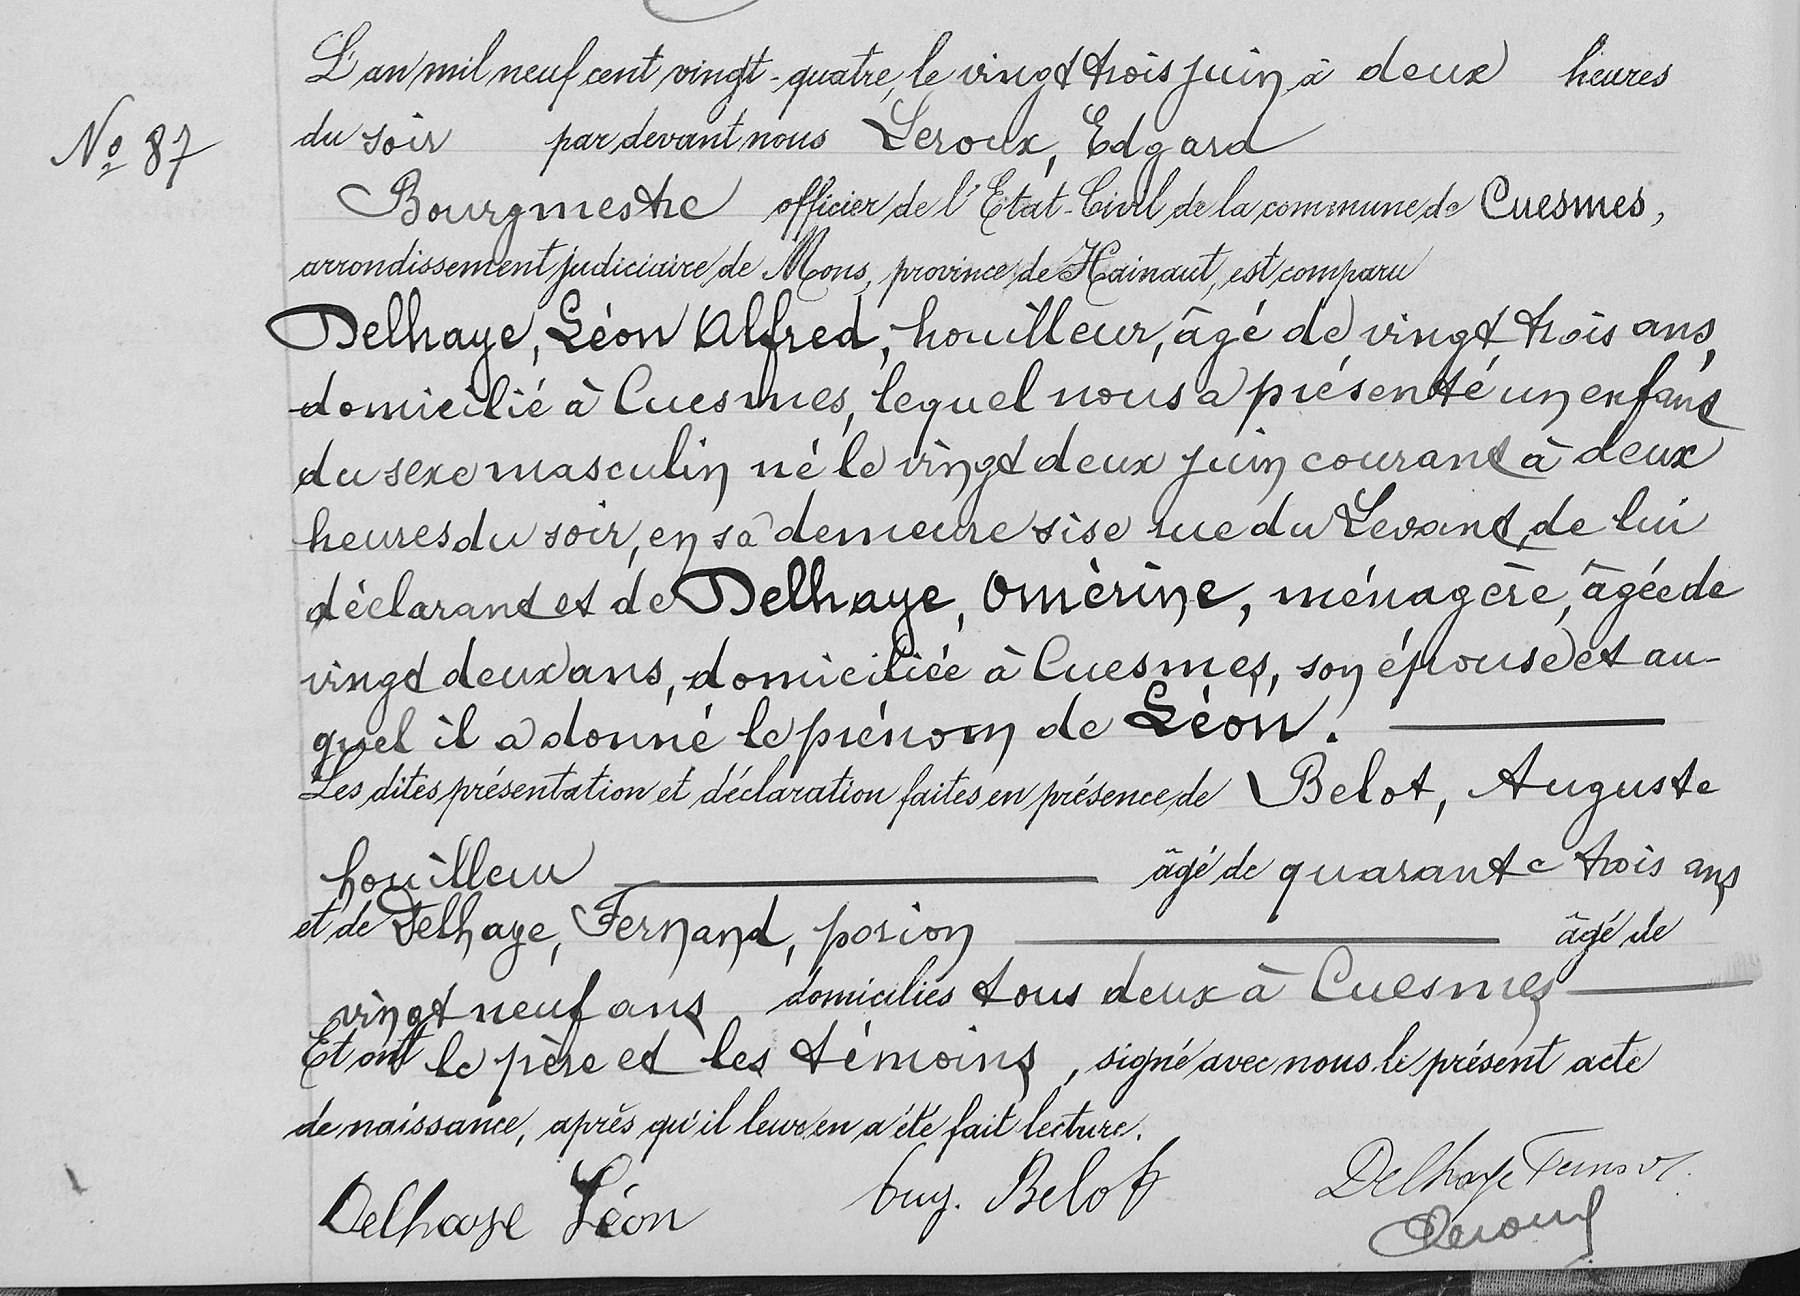 L'an mil neuf cent vingt-quatre, le vingt trois juin à deux heures
du soir par devant nous Leroux, Edgard
N° 87
Bourgmestre officier de l'Etat-Civil de la commune de Cuesmes,
arrondissement judiciaire de Mons, province de Hainaut, est comparu
Delhaye, Léon Alfred, houilleur, âgé de vingt trois ans,
domicilié à Cuesmes, lequel nous a présenté un enfant
du sexe masculin né le vingt deux juin courant à deux
heures du soir, en sa demeure sise rue du Levant, de lui
déclarant et de Delhaye, Omérine, ménagère, âgée de
vingt deux ans, domiciliée à Cuesmes, son épouse et au-
quel il a donné le prénom de Léon.
Les dites présentation et déclaration faites en présence de Belot, Auguste
houilleur âgé de quarante trois ans
et de Delhaye, Fernand, porion âgé de
vingt neuf ans domiciliés tous deux à Cuesmes
Et ont le père et les témoins, signé avec nous le présent acte
de naissance, après qu'il leur en a été fait lecture.
Delhaye Léon Aug. Belot Delhaye Fernand
Leroux